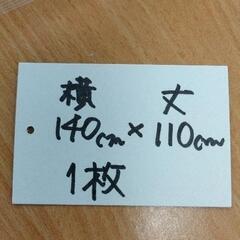 横 丈
140cm×110cm
1枚